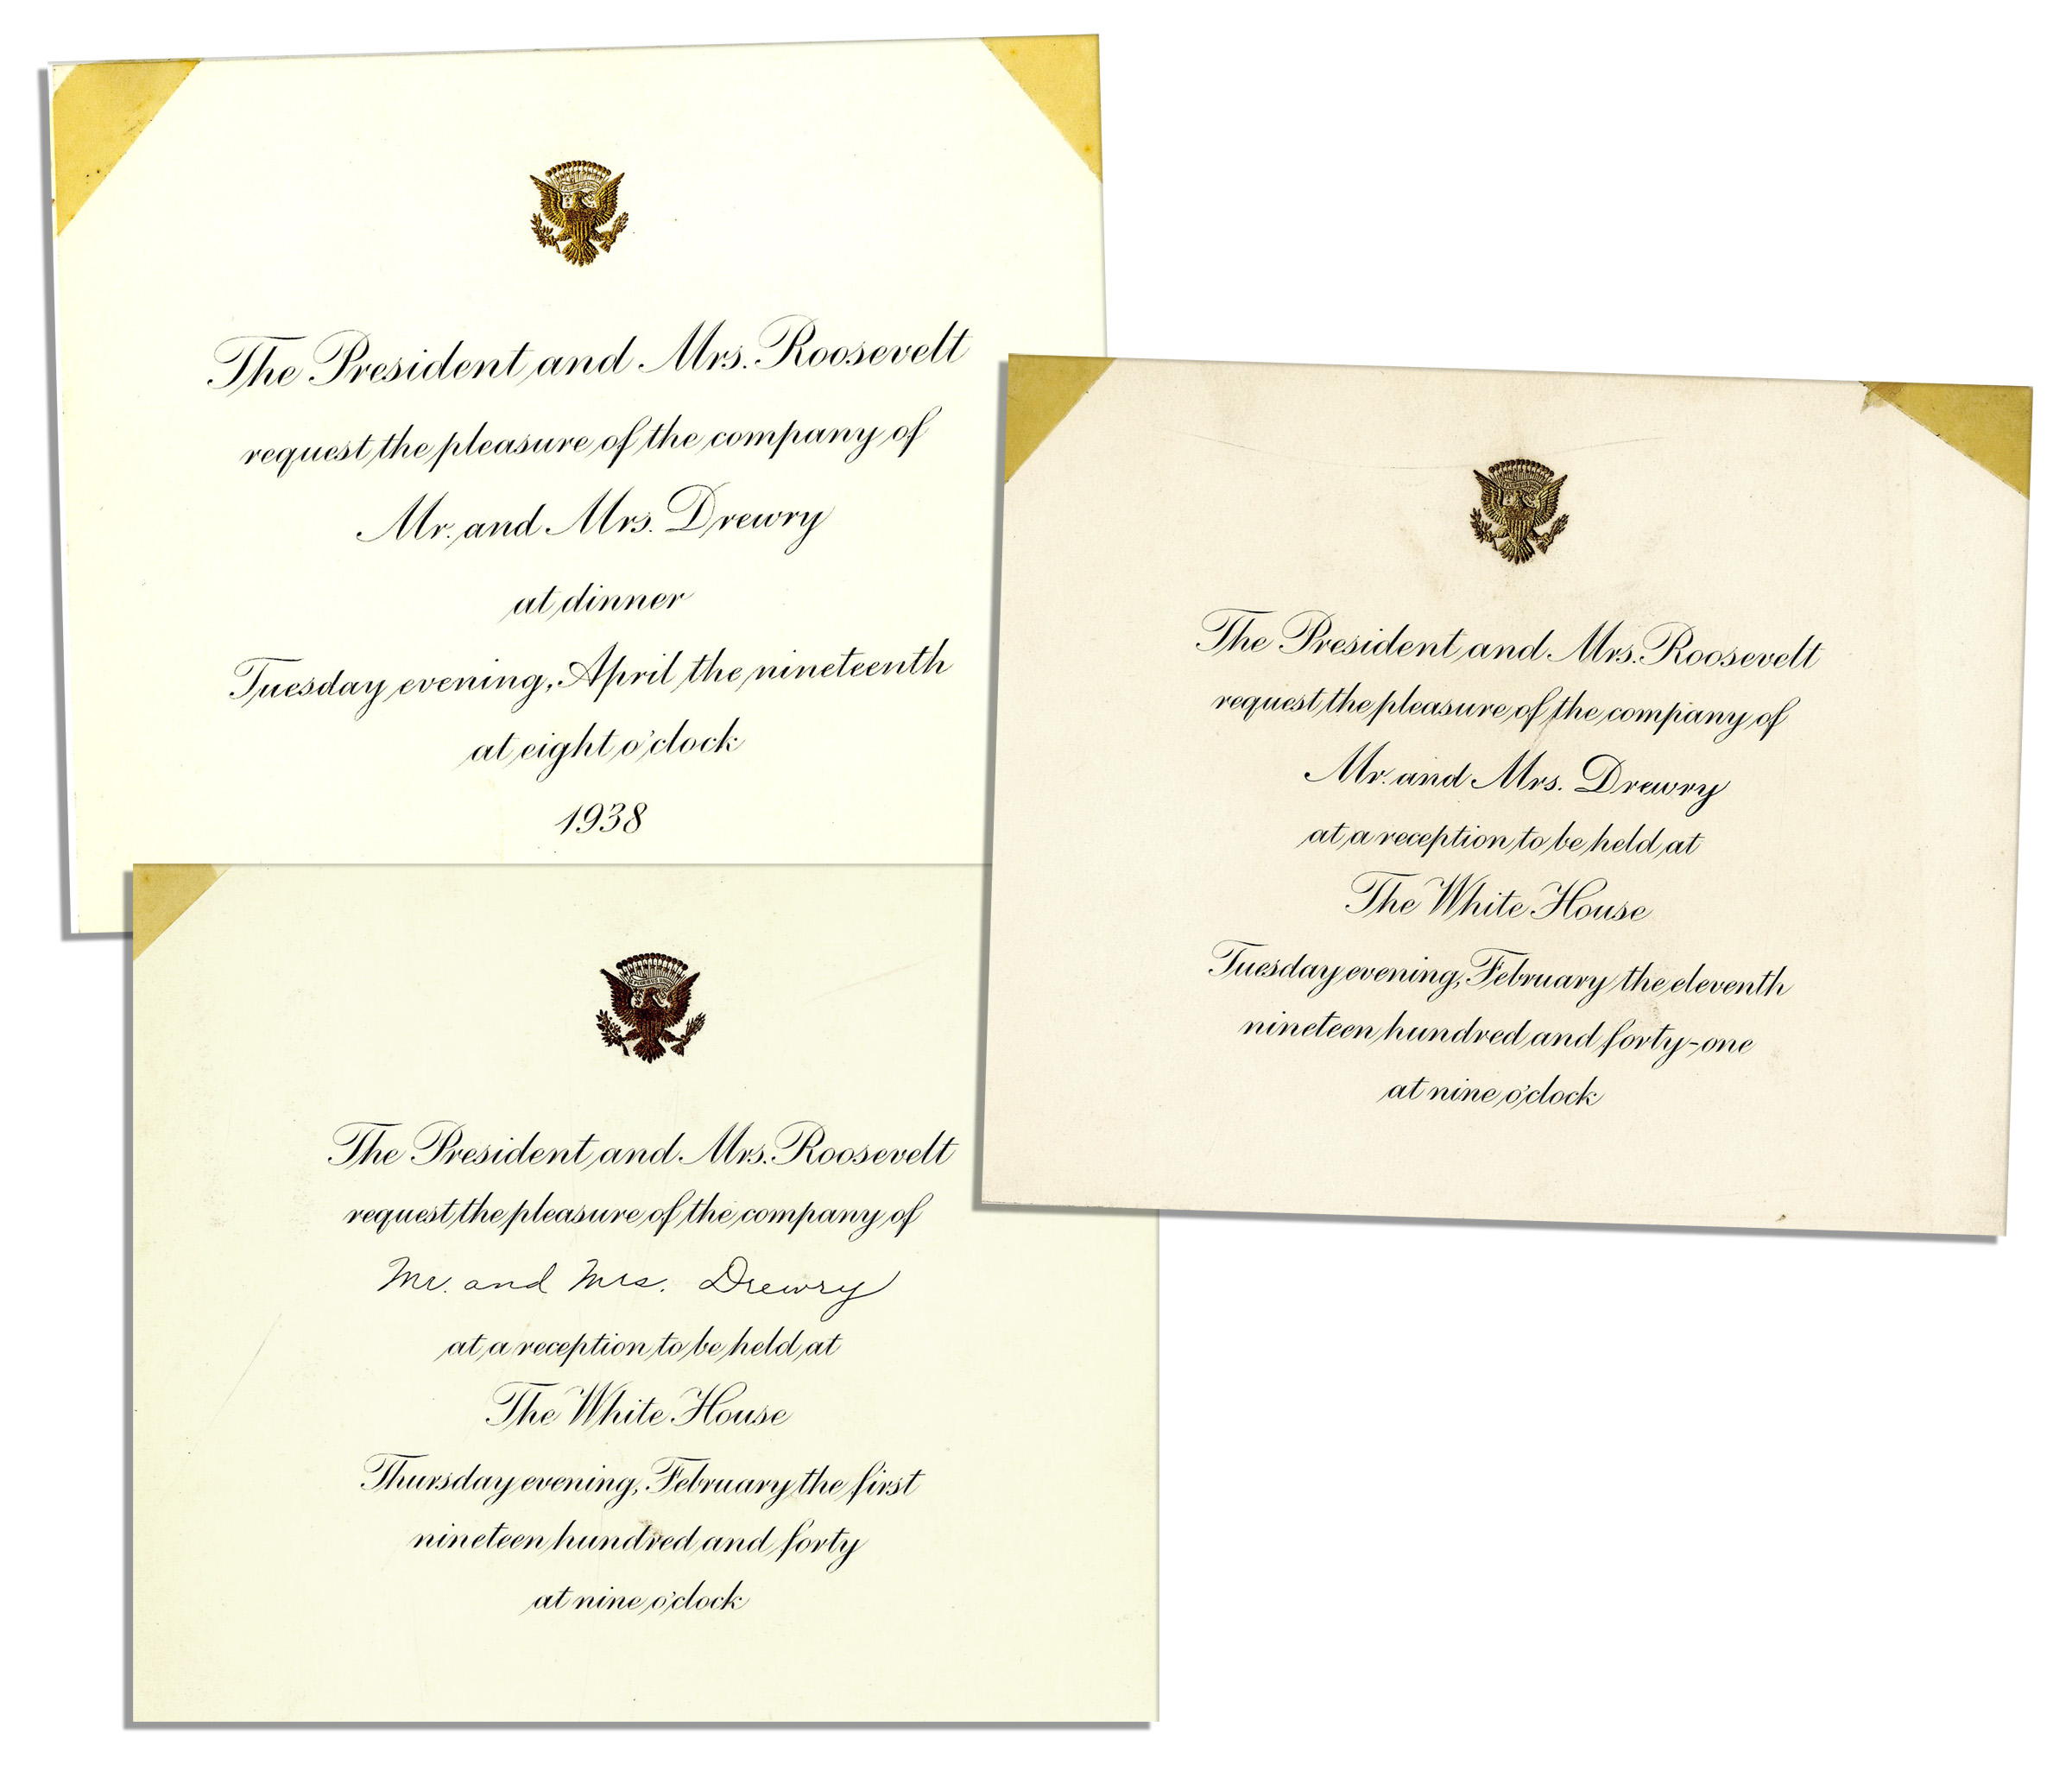 The President and Mrs. Roosevelt
request the pleasure of the company of
Mr. and Mrs. Drewry
at dinner
Tuesday evening, April the nineteenth
at eight o'clock
1938
The President and Mrs. Roosevelt
request the pleasure of the company of
Mr. and Mrs. Drewry
at a reception to be held at
The White House
Tuesday evening, February the eleventh
nineteen hundred and forty-one
at nine o'clock
The President and Mrs. Roosevelt
request the pleasure of the company of
Mr. and Mrs. Drewry
at a reception to be held at
The White House
Thursday evening, February the first
nineteen hundred and forty
at nine o'clock